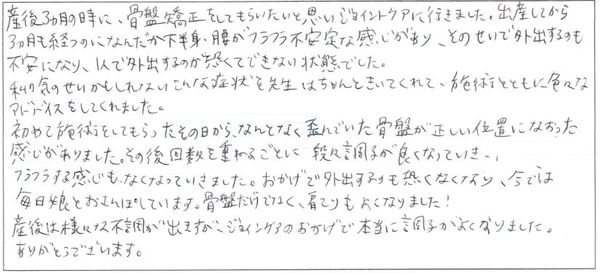 産後3ヵ月の時に、骨盤矯正をしてもらいたいと思いジョイントケアに行きました。出産してから
3ヵ月も経つのになんだか下半身・腰がフラフラ不安定な感じがあり、そのせいで外出するのも
不安になり、1人で外出するのが恐くてできない状態でした。
私の気のせいかもしれないこんな症状を先生はちゃんときいてくれて、施術とともに色々な
アドバイスをしてくれました。
初めて施術をしてもらったその日から、なんとなく歪んでいた骨盤が正しい位置になおった
感じがありました。その後回数を重ねるごとに段々調子が良くなっていき、
フラフラする感じもなくなっていきました。おかげで外出するのも恐くなくなり、今では
毎日娘とおさんぽしています。骨盤だけでなく、肩こりもよくなりました!
産後は様々な不調が出ますが、ジョイントケアのおかげで本当に調子がよくなりました。
ありがとうございます。